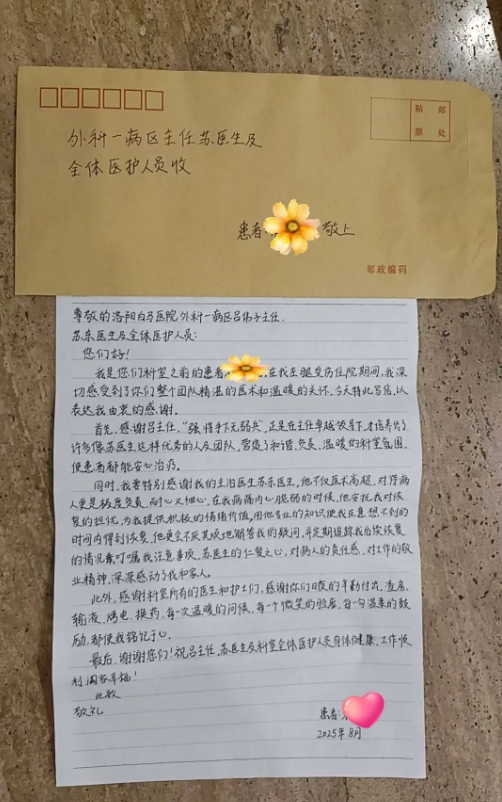 贴 邮
票 处
外科一病区主任苏医生及
全体医护人员收
患者: 敬上
邮政编码
尊敬的洛阳白马医院外科一病区吕伟子主任.
苏东医生及全体医护人员:
您们好!
我是您们科室之前的患者 ,在我左腿受伤住院期间,我深
切感受到了你们整个团队精湛的医术和温暖的关怀.今天特此写信,以
表达我由衷的感谢.
首先,感谢吕主任,"强将手下无弱兵",正是在主任卓越领导下,才培养出了
许多像苏医生这样优秀的人及团队,营造了和谐、负责、温暖的科室氛围,
使患者都能安心治疗.
同时,我要特别感谢我的主治医生苏东医生,他不仅医术高超,对待病
人更是极度负责,耐心又细心,在我病痛内心脆弱的时候,他安抚我对恢
复的担忧,为我提供积极的情绪价值,用他专业的知识使我在意想不到的
时间内得到恢复,他更会不厌其烦地解答我的疑问,并定期追踪我后续恢复
的情况并叮嘱我注意事项,苏医生的仁爱之心,对病人的责任感,对工作的敬
业精神,深深感动了我和家人.
此外,感谢科室所有的医生和护士们,感谢你们日夜的辛勤付出,查房、
输液、烤电、换药,每一次温暖的问候,每一个微笑的脸庞,每一句温柔的鼓
励,都使我铭记于心.
最后,谢谢您们!祝吕主任,苏医生及科室全体医护人员身体健康,工作顺
利,阖家幸福!
此致
敬礼
患者:
2025年8月